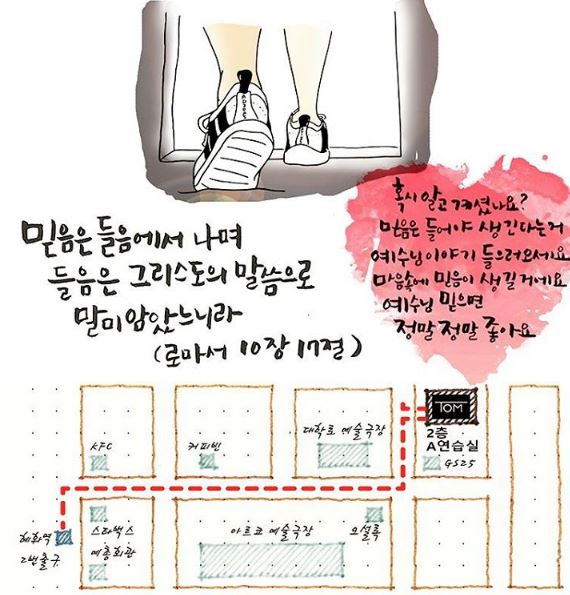 믿음은 들음에서 나며
들음은 그리스도의 말씀으로
말미암았느니라
(로마서 10장 17절)
혹시 알고계셨나요?
믿음은 들어야 생긴다는거
예수님이야기 들으러오세요
마음속에 믿음이 생길거에요
예수님 믿으면
정말 정말 좋아요
TOM
2층
A연습실
GS25
대학로 예술극장
커피빈
KFC
혜화역
2번출구
스타벅스
예총회관
아르코 예술극장
오설록